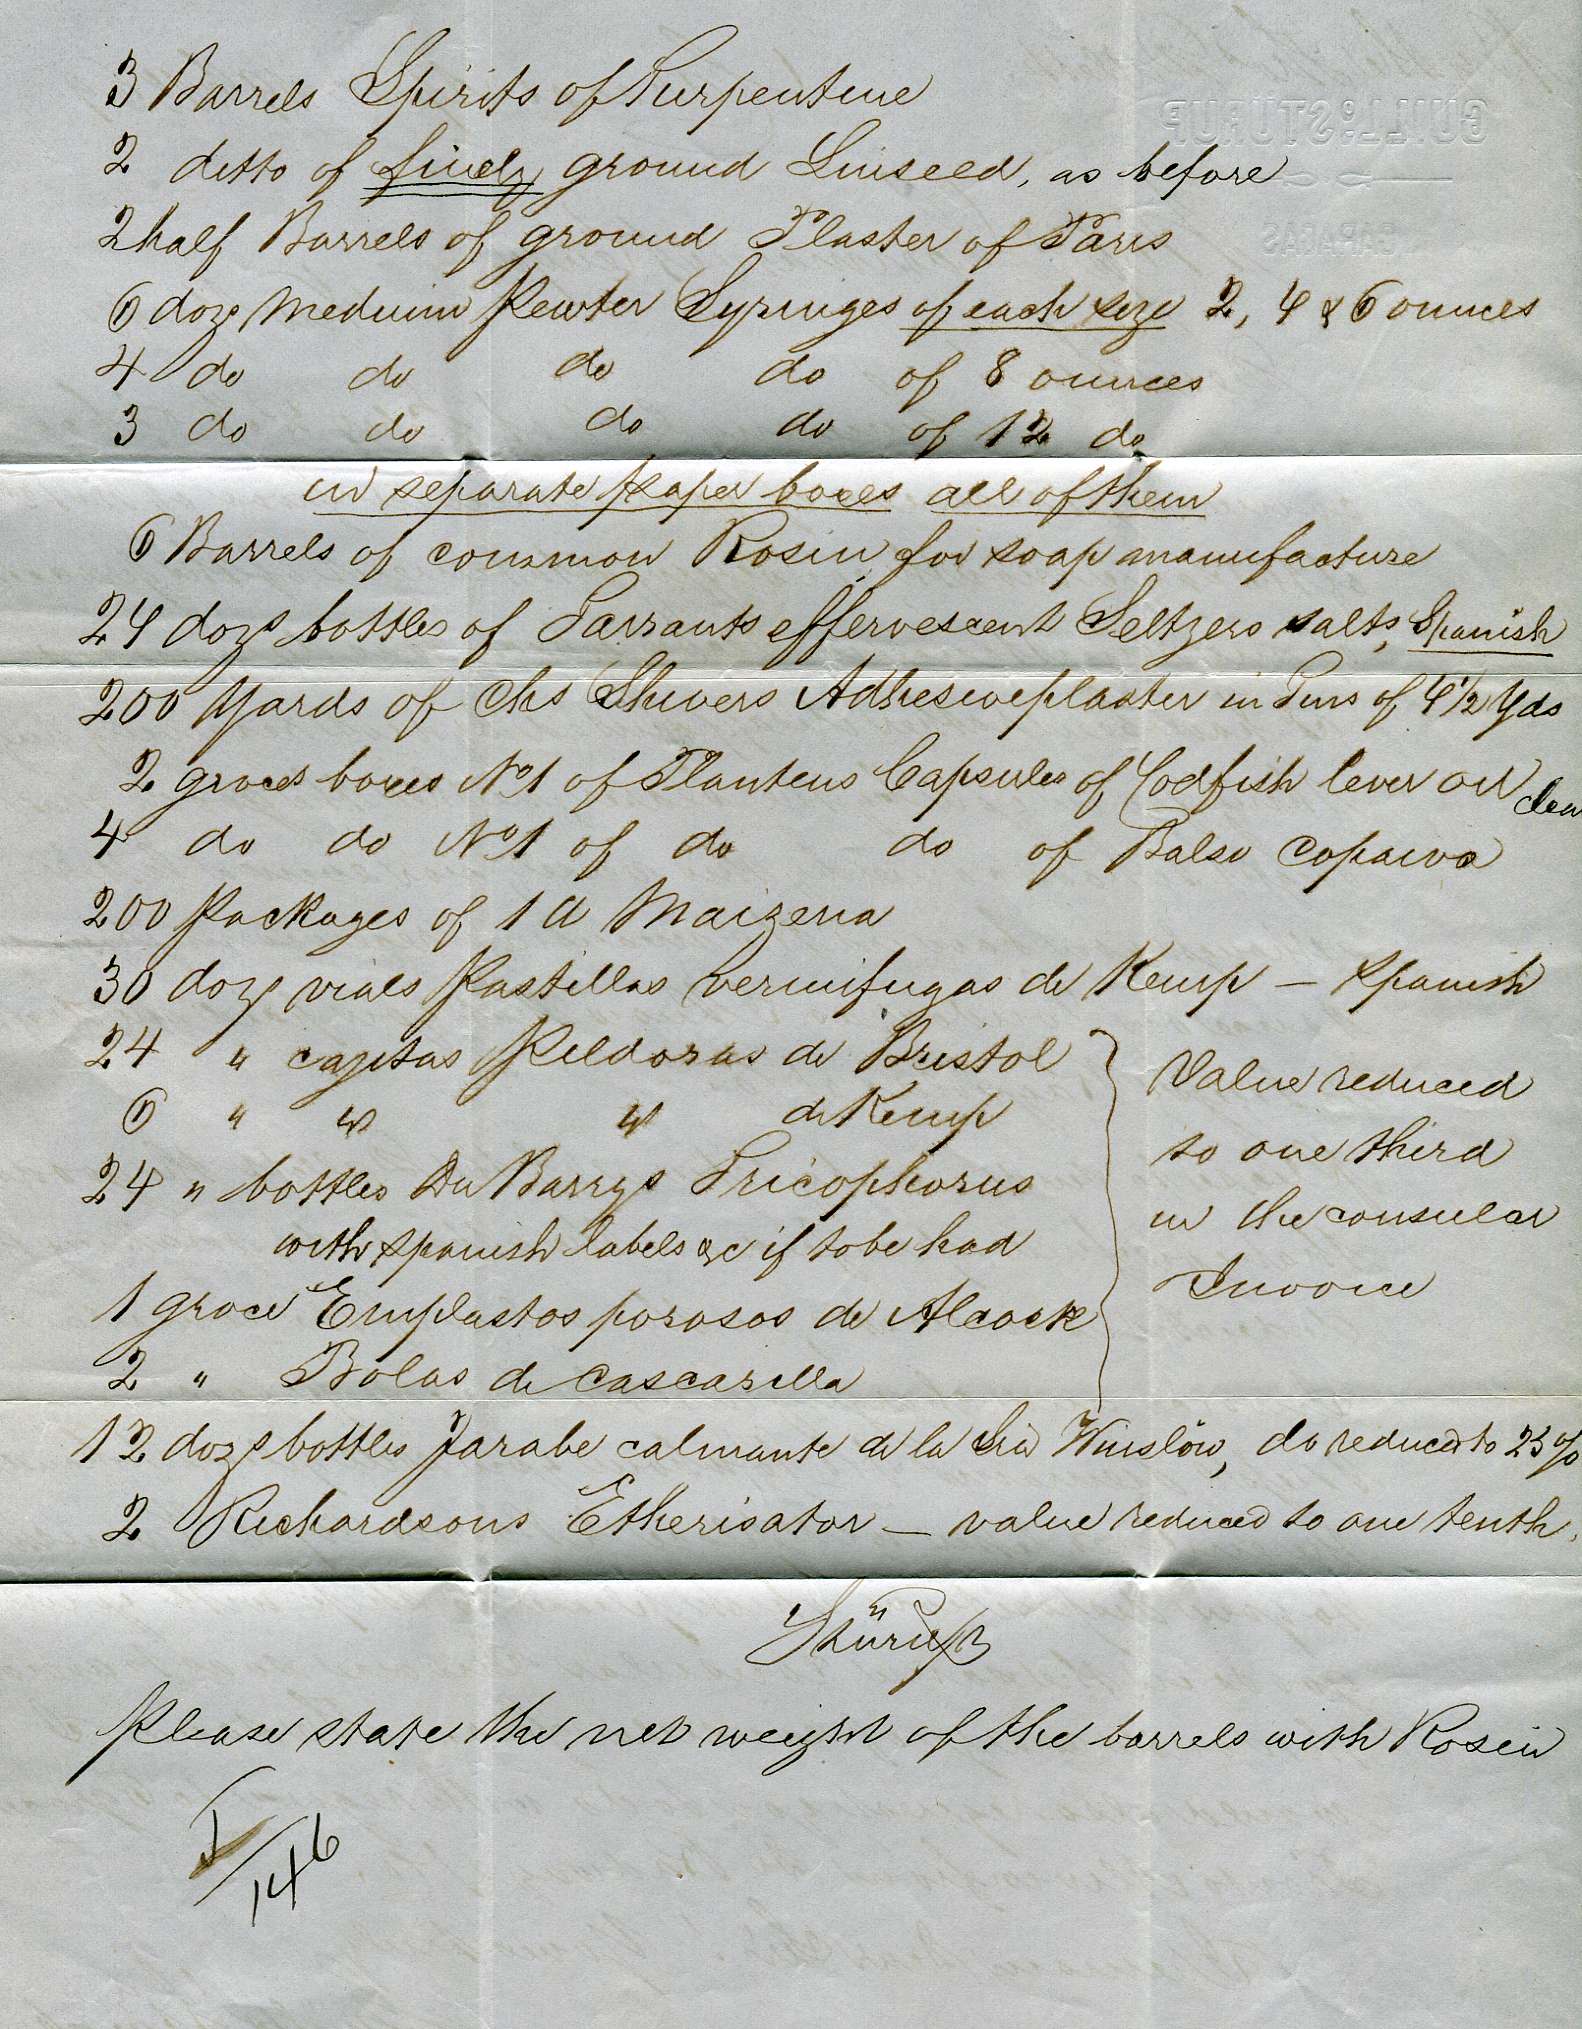 GUILL.º STÜRUP
CARACAS
3 Barrels Spirits of Turpentine
2 ditto of finely ground Linseed, as before
2 half Barrels of ground Plaster of Paris
6 dozs Medium Pewter Syringes of each size 2, 4 & 6 ounces
4 do do do do of 8 ounces
3 do do do do of 12 do
in separate paper boxes all of them
6 Barrels of common Rosin for soap manufacture
24 dozs bottles of Tarrants effervescent Seltzers salts, Spanish
200 Yards of Chs Shivers Adhesiveplaster in Tins of 4 1/2 Yds
2 groces boxes No1 of Plantens Capsules of Codfish lever oil clear
4 do do No1 of do do of Balso Copaiva
200 Packages of 1 lb Maizena
30 dozs vials Pastillas vermifugas de Kemp — Spanish
24 " cajitas Pildoras de Bristol
6 " " " de Kemp
24 " bottles Du Barrys Tricopherus
with spanish labels &c if to be had
1 groce Emplastos porosos de Alcock
2 " Bolas de cascarilla
Value reduced
to one third
in the consular
Invoice
12 dozs bottles Jarabe calmante de la Sra Winslow, do reduced to 25 %
2 Richardsons Etherisator — value reduced to one tenth.
Stürup
Please state the net weight of the barrels with Rosin
146